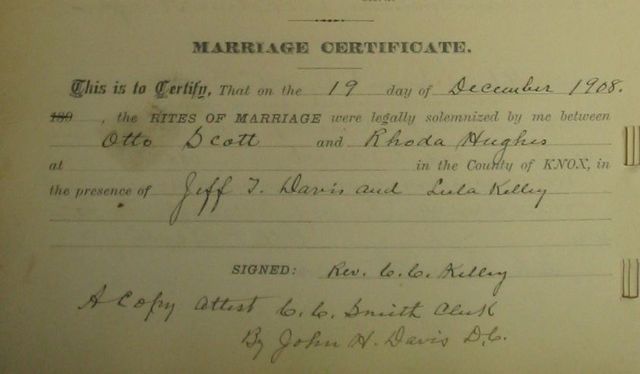 MARRIAGE CERTIFICATE.
This is to Certify, That on the 19 day of December 1908.
189 , the RITES OF MARRIAGE were legally solemnized by me between
Otto Scott and Rhoda Hughes
at in the County of KNOX, in
the presence of Jeff T. Davis and Lula Kelley
SIGNED: Rev. C. C. Kelley
A Copy Attest C. C. Smith Clerk
By John H. Davis D.C.